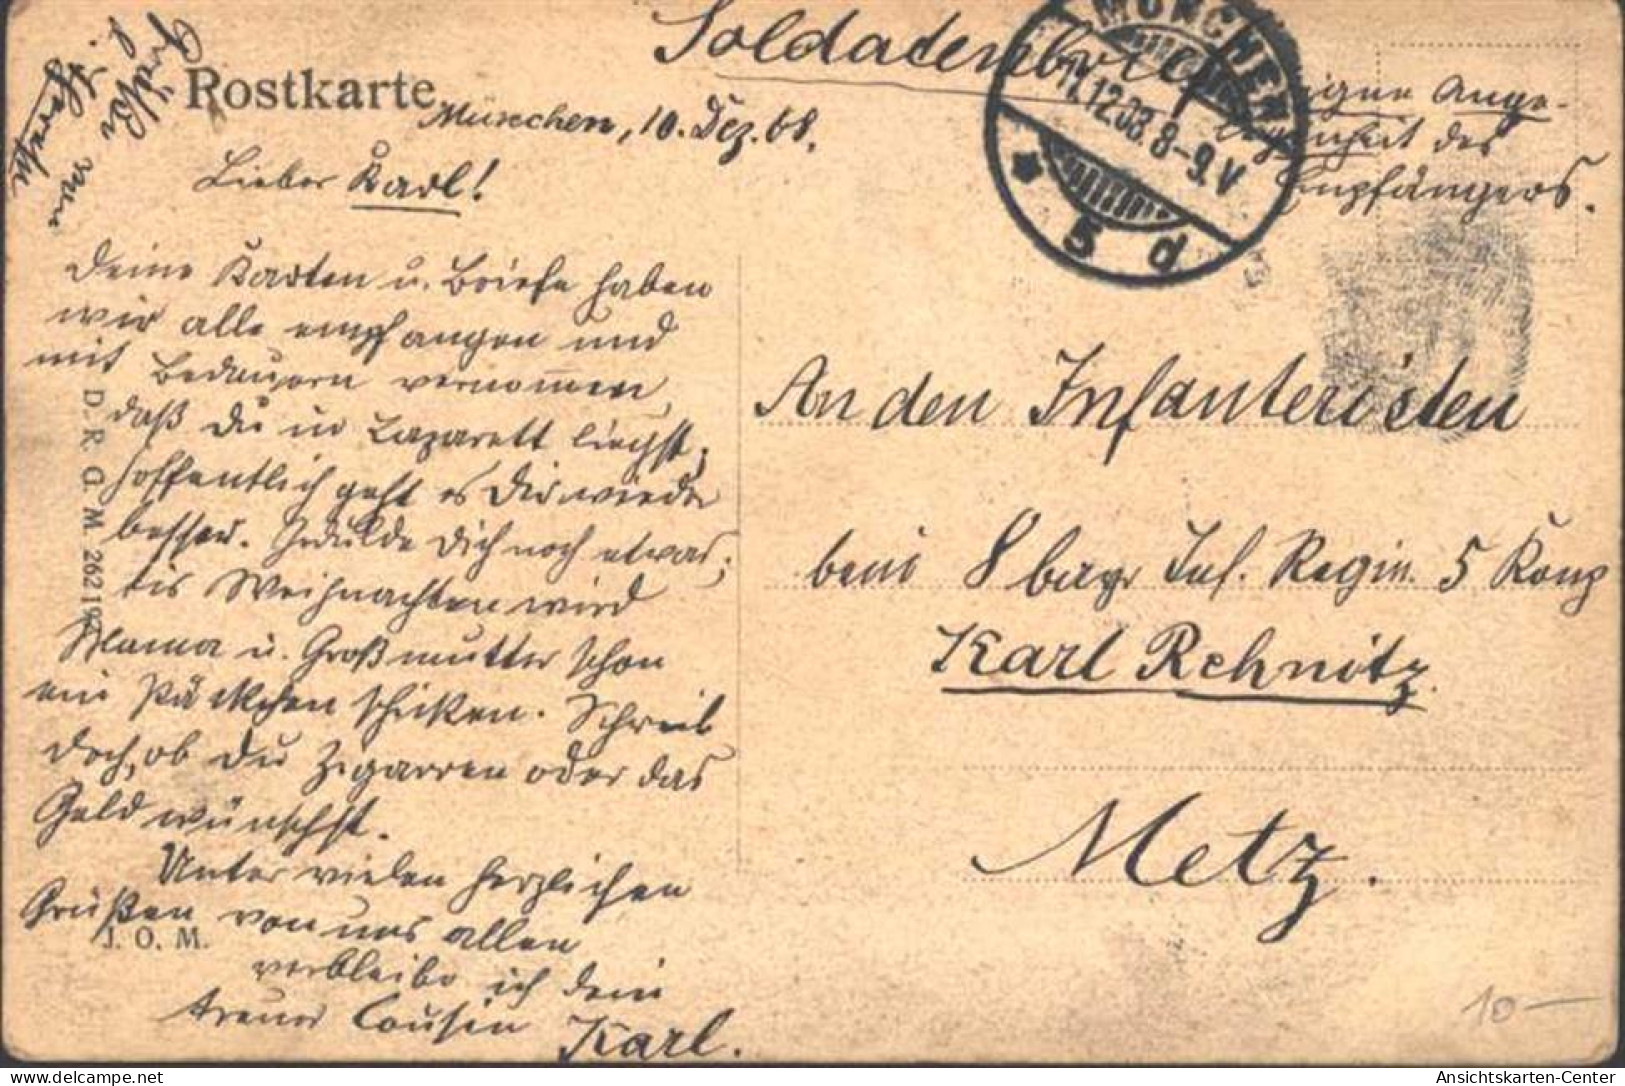 Soldatenbrief
Eigene Ange-
legenheit des
Empfängers.
MÜNCHEN
11.12.08. 8-9.V
5 d
Postkarte
München, 10. Dez. 08.
Lieber Karl!
Deine Karten u. Briefe haben
wir alle empfangen und
mit Bedauern vernom̅en,
daß Du in Lazarett liegst;
hoffentlich geht es Dir wieder
besser. Gedulde Dich noch etwas;
bis Weihnachten wird
Mama u. Großmutter schon
ein Päckchen schicken. Schreib
doch, ob Du Zigarren oder das
Geld wünschst.
Unter vielen herzlichen
Grüßen von uns allen
verbleibe ich dein
treuer Cousin
Karl.
Grüße von
D. R. G. M. 26219
J. O. M.
An den Infanteristen
beim 8 bayr Inf. Regim. 5 Komp
Karl Rehnitz.
Metz.
10 —
Ansichtskarten-Center